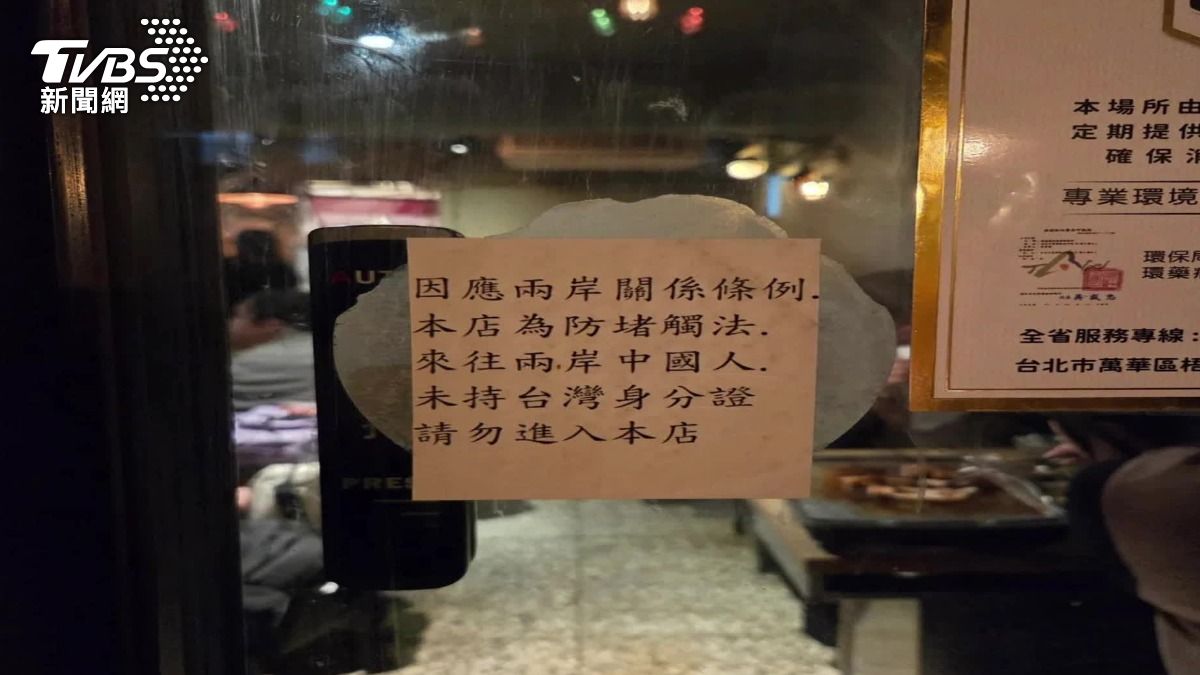 TVBS
新聞網
因應兩岸關係條例.
本店為防堵觸法.
來往兩岸中國人.
未持台灣身分證
請勿進入本店
AUT
PRES
本場所由
定期提供
確保
專業環境
環保局
環藥
全省服務專線:
台北市萬華區梧